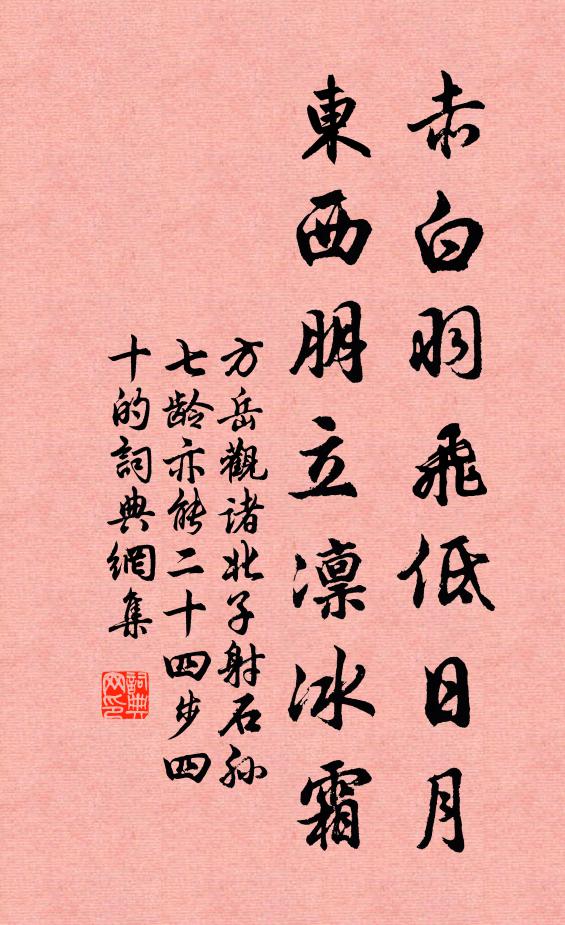 赤白羽飛低日月
東西朋立凛冰霜
方岳觀諸北子射石孙
七龄亦能二十四步四
十的詞典網集
詞典網印